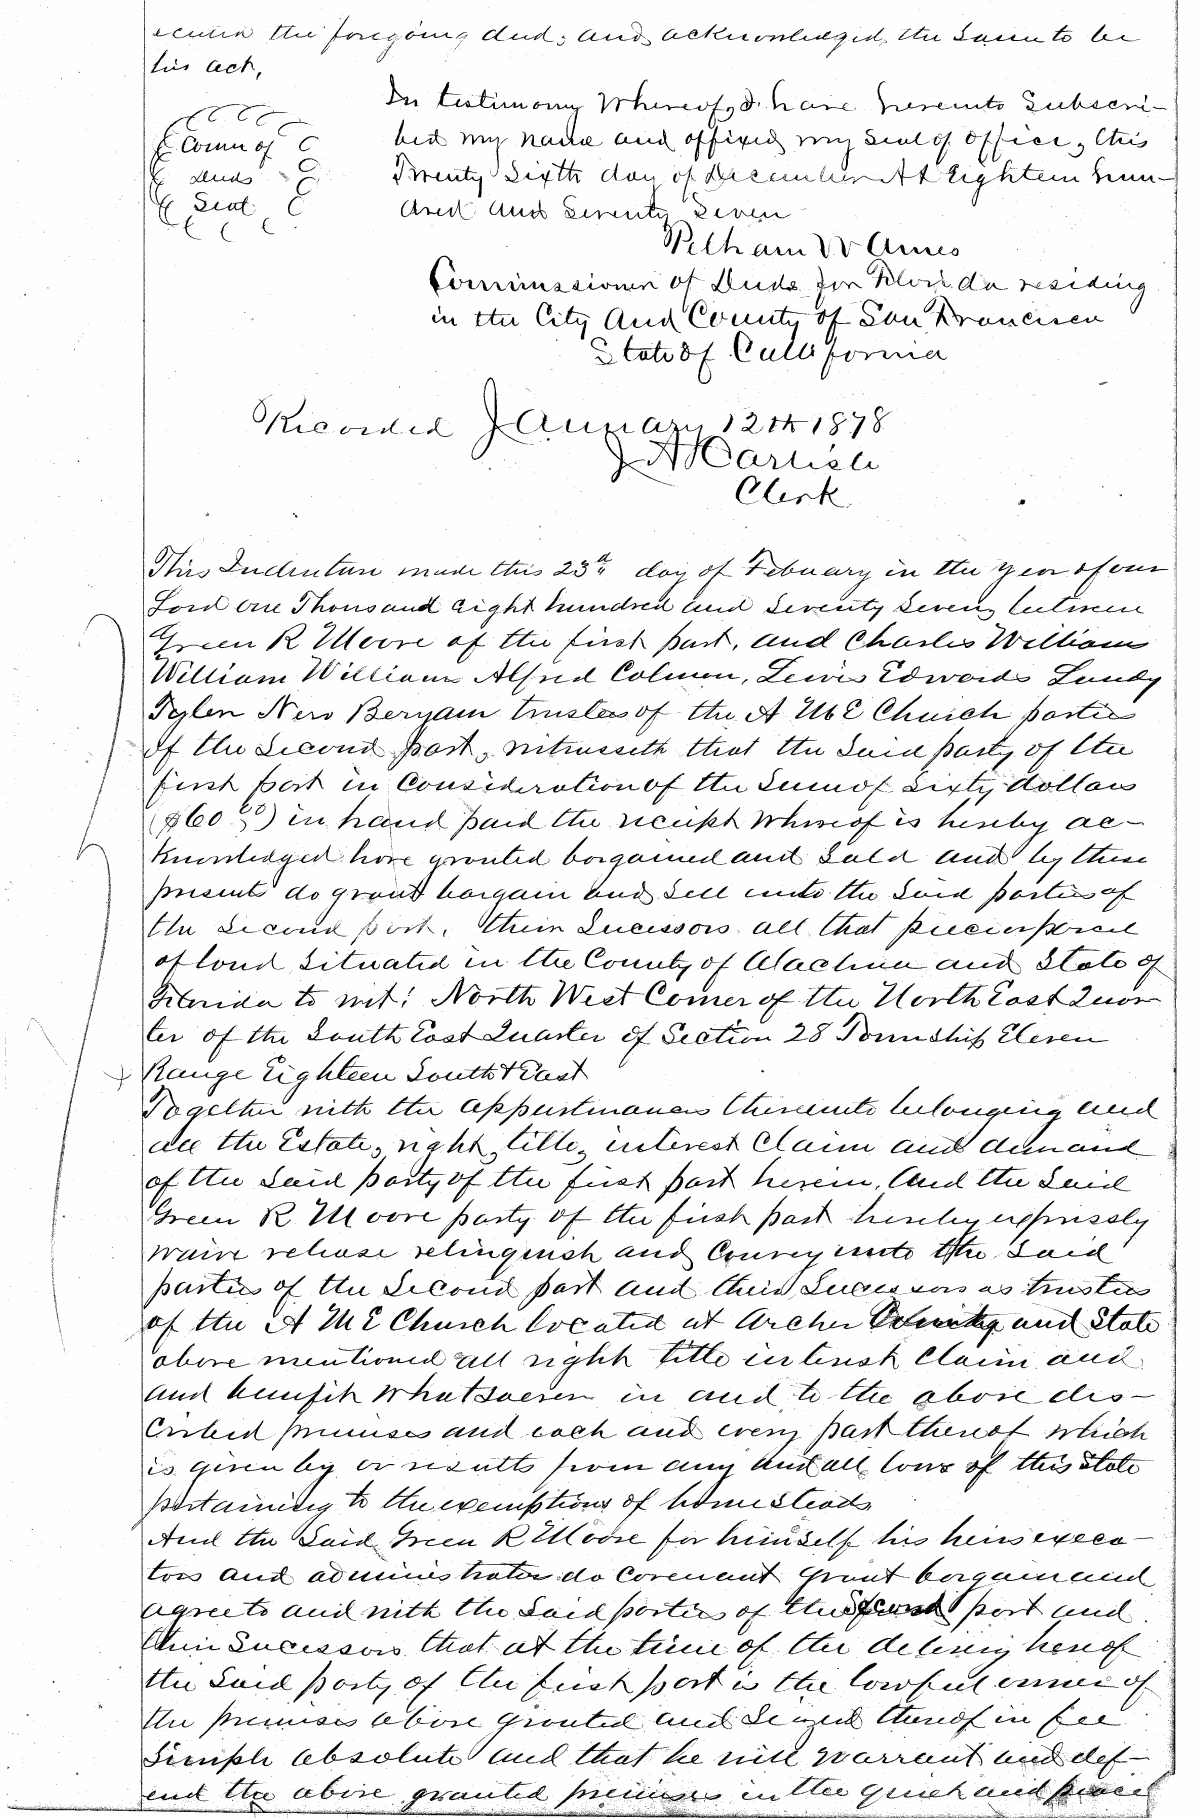 the foregoing deed; and acknowledged the same to be
his act,
In testimony Whereof, I have hereunto Subscri-
bed my name and affixed my seal of office, this
Twenty Sixth day of December A1 Eighteen hun-
dred and Seventy Seven
Comm of
Deeds
Seal
Pelham W Ames
Commissioner of Deeds for Florida residing
in the City And County of San Francisco
State of California
Recorded January 12th 1878
J A Carlisle
Clerk
This Indenture made this 23rd day of Febuary in the year of our
Lord one Thousand eight hundred and seventy seven, between
Green R Moore of the first part, and Charles Williams
William Williams Alfred Colmon, Lewis Edwards Lundy
Tyler New trustees of the A M E Church parties
of the second part, witnesseth that the said party of the
first part in Consideration of the Sum of Sixty dollars
($60 00) in hand paid the receipt Whereof is hereby ac-
knowledged have granted bargained and Sold and by these
presents do grant bargain and Sell unto the Said parties of
the second part, their Sucessors all that piece or parcel
of land situated in the County of Alachua and State of
Florida to wit: North West Corner of the North East Quar
ter of the South East Quarter of Section 28 Township Eleven
Range Eighteen South & East
Together with the appurtinances thereunto belonging and
all the Estate, right, title, interest Claim and demand
of the said party of the first part herein, And the Said
Green R Moore party of the first part hereby expressly
waive release relinquish and Convey unto the Said
parties of the Second part and their Sucessors as trustees
of the A M E Church located at Archer County and State
above mentioned all right title interest Claim and
and benifit Whatsoever in and to the above des-
cribed premises and each and every part thereof which
is given by or results from any and all laws of this State
pertaining to the exemptions of homesteads
And the Said Green R Moore for himself his heirs execu-
tors and administrators do Covenant grant bargain and
agree to and with the Said parties of the second part and
their Sucessors that at the time of the delivery hereof
the Said party of the first part is the lawful owner of
the premises above granted and Seized thereof in fee
Simple absolute and that he will warrant and def-
end the above granted premises in the quiet and